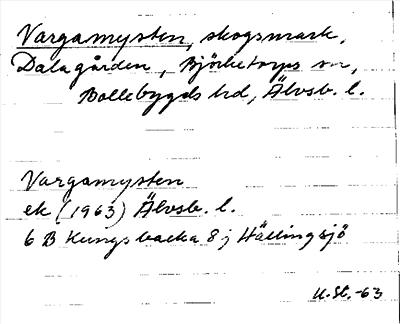 Vargamysten, skogsmark,
Dalagården, Björketorps sn,
Bollebygds hd, Älvsb. l.
Vargamysten
ek (1963) Älvsb. l.
6 B Kungsbacka 8 j Hällingsjö
U.St.-63